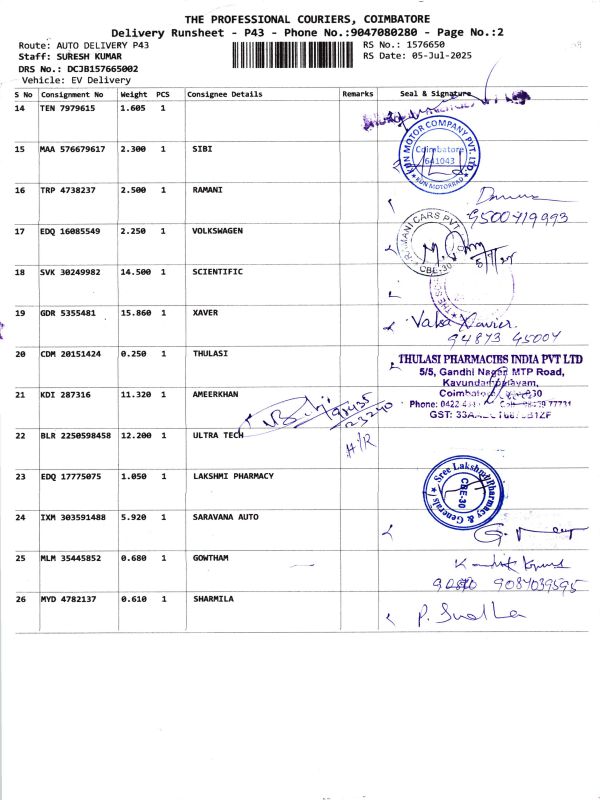 THE PROFESSIONAL COURIERS, COIMBATORE
Delivery Runsheet - P43 - Phone No.:9047080280 - Page No.:2
Route: AUTO DELIVERY P43 RS No.: 1576650
Staff: SURESH KUMAR RS Date: 05-Jul-2025
DRS No.: DCJB157665002
Vehicle: EV Delivery
S No Consignment No Weight PCS Consignee Details Remarks Seal & Signature
14 TEN 7979615 1.605 1
KUN MOTOR COMPANY PVT. LTD.
Coimbatore
641043
KUN MOTORRAD
15 MAA 576679617 2.300 1 SIBI
16 TRP 4738237 2.500 1 RAMANI
9500419993
RAMANI CARS PVT
CBE-30
17 EDQ 16085549 2.250 1 VOLKSWAGEN
18 SVK 30249982 14.500 1 SCIENTIFIC
19 GDR 5355481 15.860 1 XAVER
Xavier
94873 45004
20 CDM 20151424 0.250 1 THULASI
THULASI PHARMACIES INDIA PVT LTD
5/5, Gandhi Nagar MTP Road,
Kavundampalayam,
Coimbatore
Phone: 0422
GST:
21 KDI 287316 11.320 1 AMEERKHAN
98435
23240
22 BLR 2250598458 12.200 1 ULTRA TECH
H/R
23 EDQ 17775075 1.050 1 LAKSHMI PHARMACY
Sree Lakshmi Pharmacy & Generals
CBE-30
24 IXM 303591488 5.920 1 SARAVANA AUTO
25 MLM 35445852 0.680 1 GOWTHAM
9087039595
26 MYD 4782137 0.610 1 SHARMILA
P. Sudha